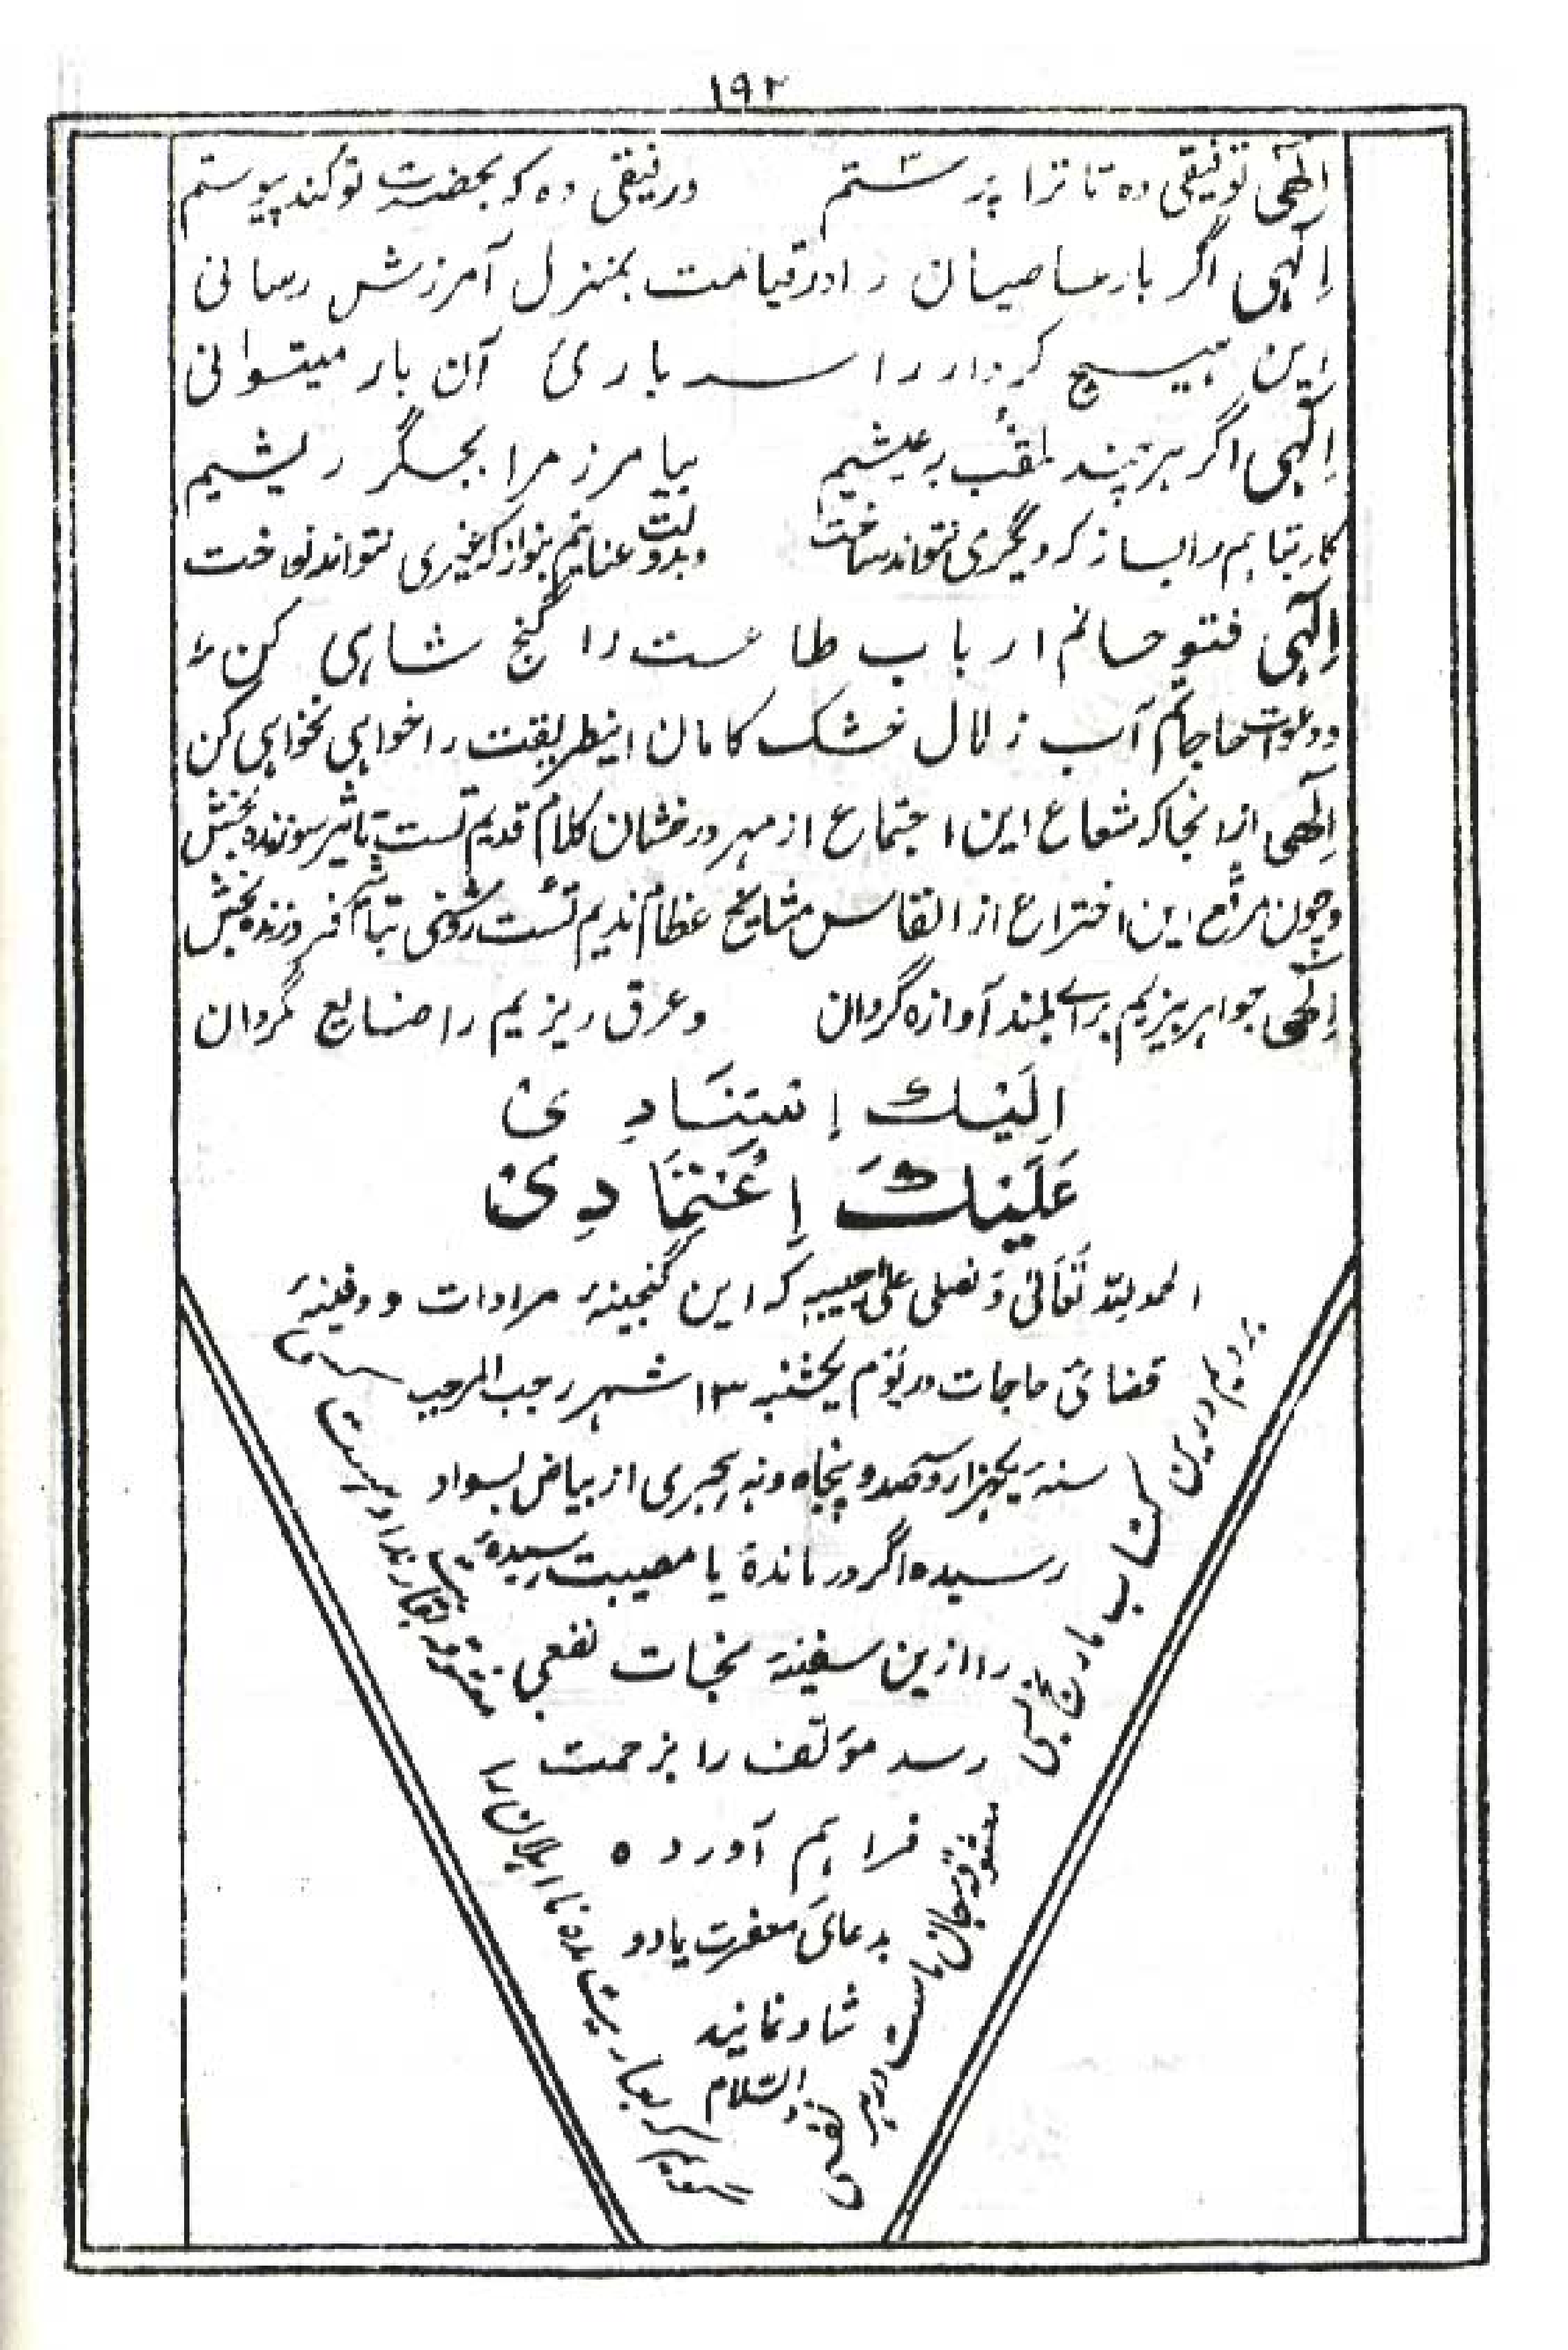 ۱۹۲
اِلٰهی توفیقی ده تا ترا پرستم ورفیقی ده که بحضرت تو کند پیوستم
اِلٰهی اگر بار عاصیان را در قیامت بمنزل آمرزش رسانی
این هیچ کردار را سر باریٔ آن بار میتوانی
اِلٰهی اگر هر چند بر عیشیم بیامرز مرا بجگر ریشیم
کار تباهم را بساز که دیگری نتواند ساخت وبدولت عنایتم بنواز که غیری نتواند نواخت
اِلٰهی فتوحاتم ارباب طاعت را گنج شاهی کن
ودعوات حاجاتم آب زلال خشک کامان اینطریقت را خواهی نخواهی کن
اِلٰهی از انجا که شعاع این اجتماع از مهر درخشان کلام قدیم تست تاثیر سوزنده بخش
وچون این اختراع از انفاس مشایخ عظام ندیم تست روشنی فروزنده بخش
اِلٰهی جواهر ریزیم برای بلند آوازه گردان وعرق ریزیم را ضایع گردان
اِلَیْكَ اِسْتِنَادِیْ
عَلَیْكَ اِعْتِمَادِیْ
الحمد لله تَعَالٰی وَ نصلی علیٰ حبیبه که این گنجینهٔ مرادات و دفینهٔ
قضائی حاجات در یَوْم یکشنبه ۱۳ شهر رجب المرجب
سنه یکهزار و صد و پنجاه و نه هجری از بیاض بسواد
رسیده اگر درماندهٔ یا مصیبت رسیدهٔ
را ازین سفینهٔ نجات نفعی
رسد مؤلف را بزحمت
فراهم آورده
بدعائ مغفرت یاد و
شاد نمایند
والسّلام
بردیم درین کتاب ما رنج بسی
معشوق جان ماست در هر نفسی
را بعاریت